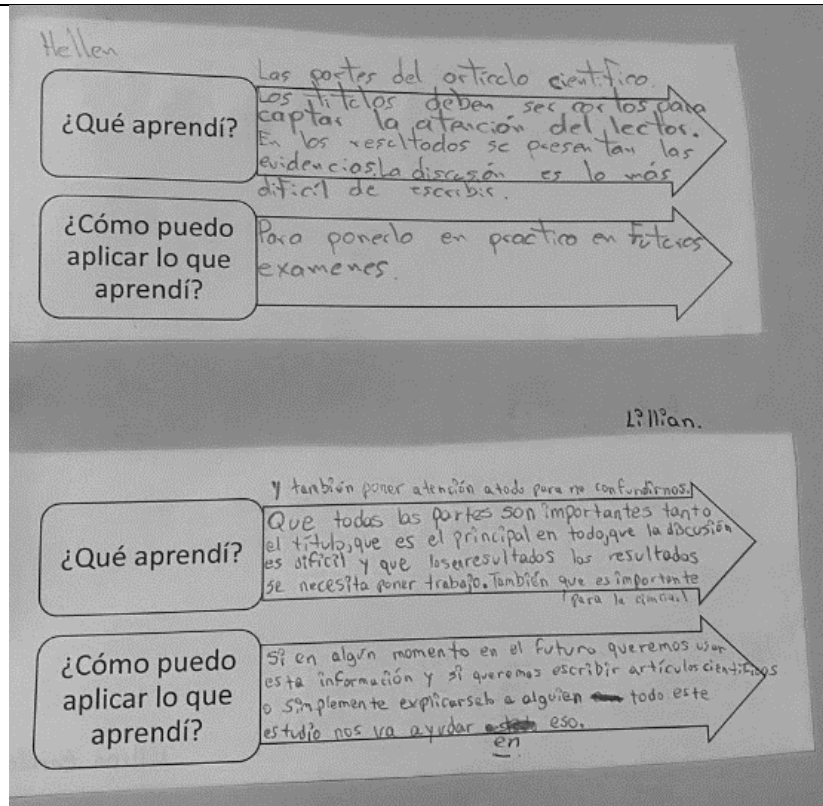 Hellen
¿Qué aprendí?
Las partes del artículo científico.
Los títulos deben ser cortos para
captar la atención del lector.
En los resultados se presentan las
evidencios. La discusión es lo más
difícil de escribir.
¿Cómo puedo
aplicar lo que
aprendí?
Para ponerlo en practico en futuros
examenes.
Lillian.
¿Qué aprendí?
Y también poner atención a todo para no confundirnos.
Que todas las partes son importantes tanto
el título, que es el principal en todo, que la discusión
es difícil y que los resultados los resultados
se necesita poner trabajo. También que es importante
para la ciencia.
¿Cómo puedo
aplicar lo que
aprendí?
Si en algún momento en el futuro queremos usar
esta información y si queremos escribir artículos científicos
o simplemente explicarselo a alguien todo este
estudio nos va ayudar eso.
en